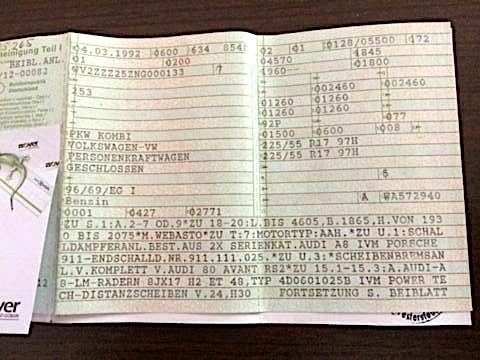 S 265
einigung Teil I
BEIBL.ANL.
/12-0008J
Bundesrepublik
Deutschland
04.03.1992 0600 634 854 02 01 0128/05500 172
01 0200 04570 1845
WV2ZZZ25ZNG000133 7 1960 01800
02460 002460
253 01260 01260
01260 01260
92P 077
PKW KOMBI 01500 0600 008
VOLKSWAGEN-VW 225/55 R17 97H
PERSONENKRAFTWAGEN 225/55 R17 97H
GESCHLOSSEN
5
96/69/EG I
Benzin A WA572940
0001 0427 02771
*ZU S.1:A.2-7 OD.9*ZU 18-20:L.BIS 4605,B.1865,H.VON 193
0 BIS 2075*M.WEBASTO*ZU T:7:MOTORTYP:AAH.*ZU U.1:SCHAL
LDÄMPFERANL.BEST.AUS 2X SERIENKAT.AUDI A8 IVM PORSCHE
911-ENDSCHALLD.NR.911.111.025.*ZU U.3:*SCHEIBENBREMSAN
L.V.KOMPLETT V.AUDI 80 AVANT RS2*ZU 15.1-15.3:A.AUDI-A
8-LM-RÄDERN 8JX17 H2 ET 48,TYP 4D0601025B IVM POWER TE
CH-DISTANZSCHEIBEN V.24,H30 FORTSETZUNG S. BEIBLATT